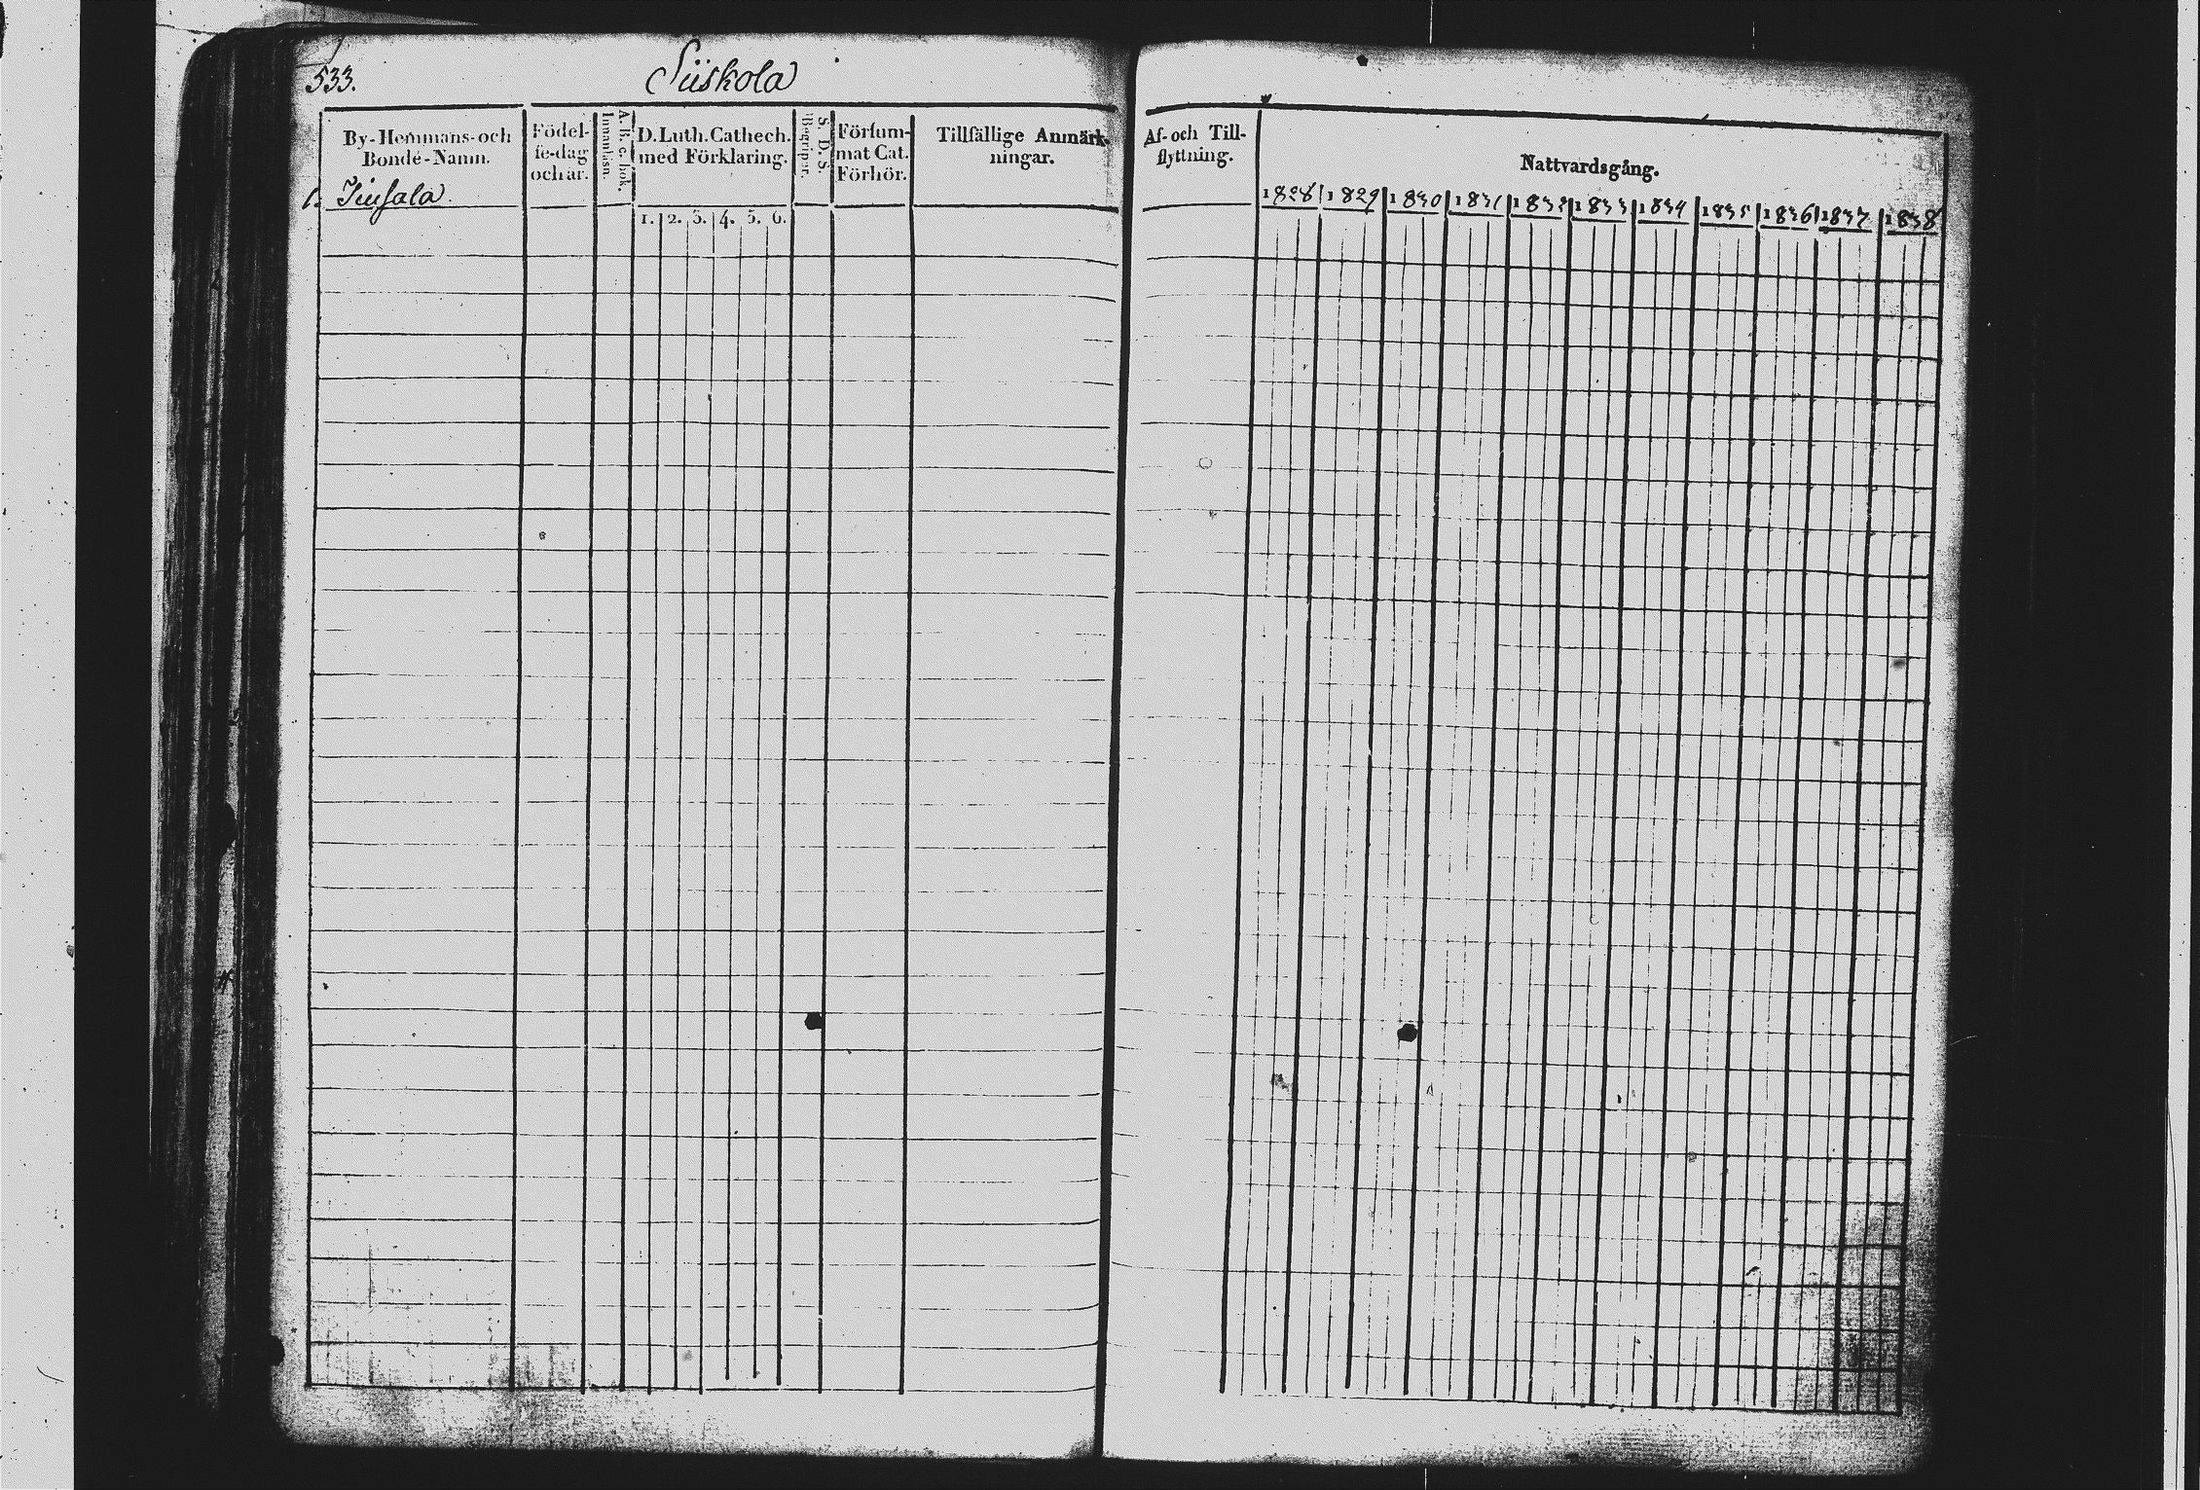 533.
Siiskola
By-Hemmans-och
Bonde-Namn.
Födel-
se-dag
och år.
A. B. c. bok.
Innanläsn.
D. Luth. Cathech.
med Förklaring.
S. D. S.
Begriper.
Försum-
mat Cat.
Förhör.
Tillfällige Anmärk-
ningar.
1.
1. 2. 3. 4. 5. 6.
Af- och Till-
flyttning.
Nattvardsgång.
1828 1829 1830 1831 1832 1833 1834 1835 1836 1837 1838